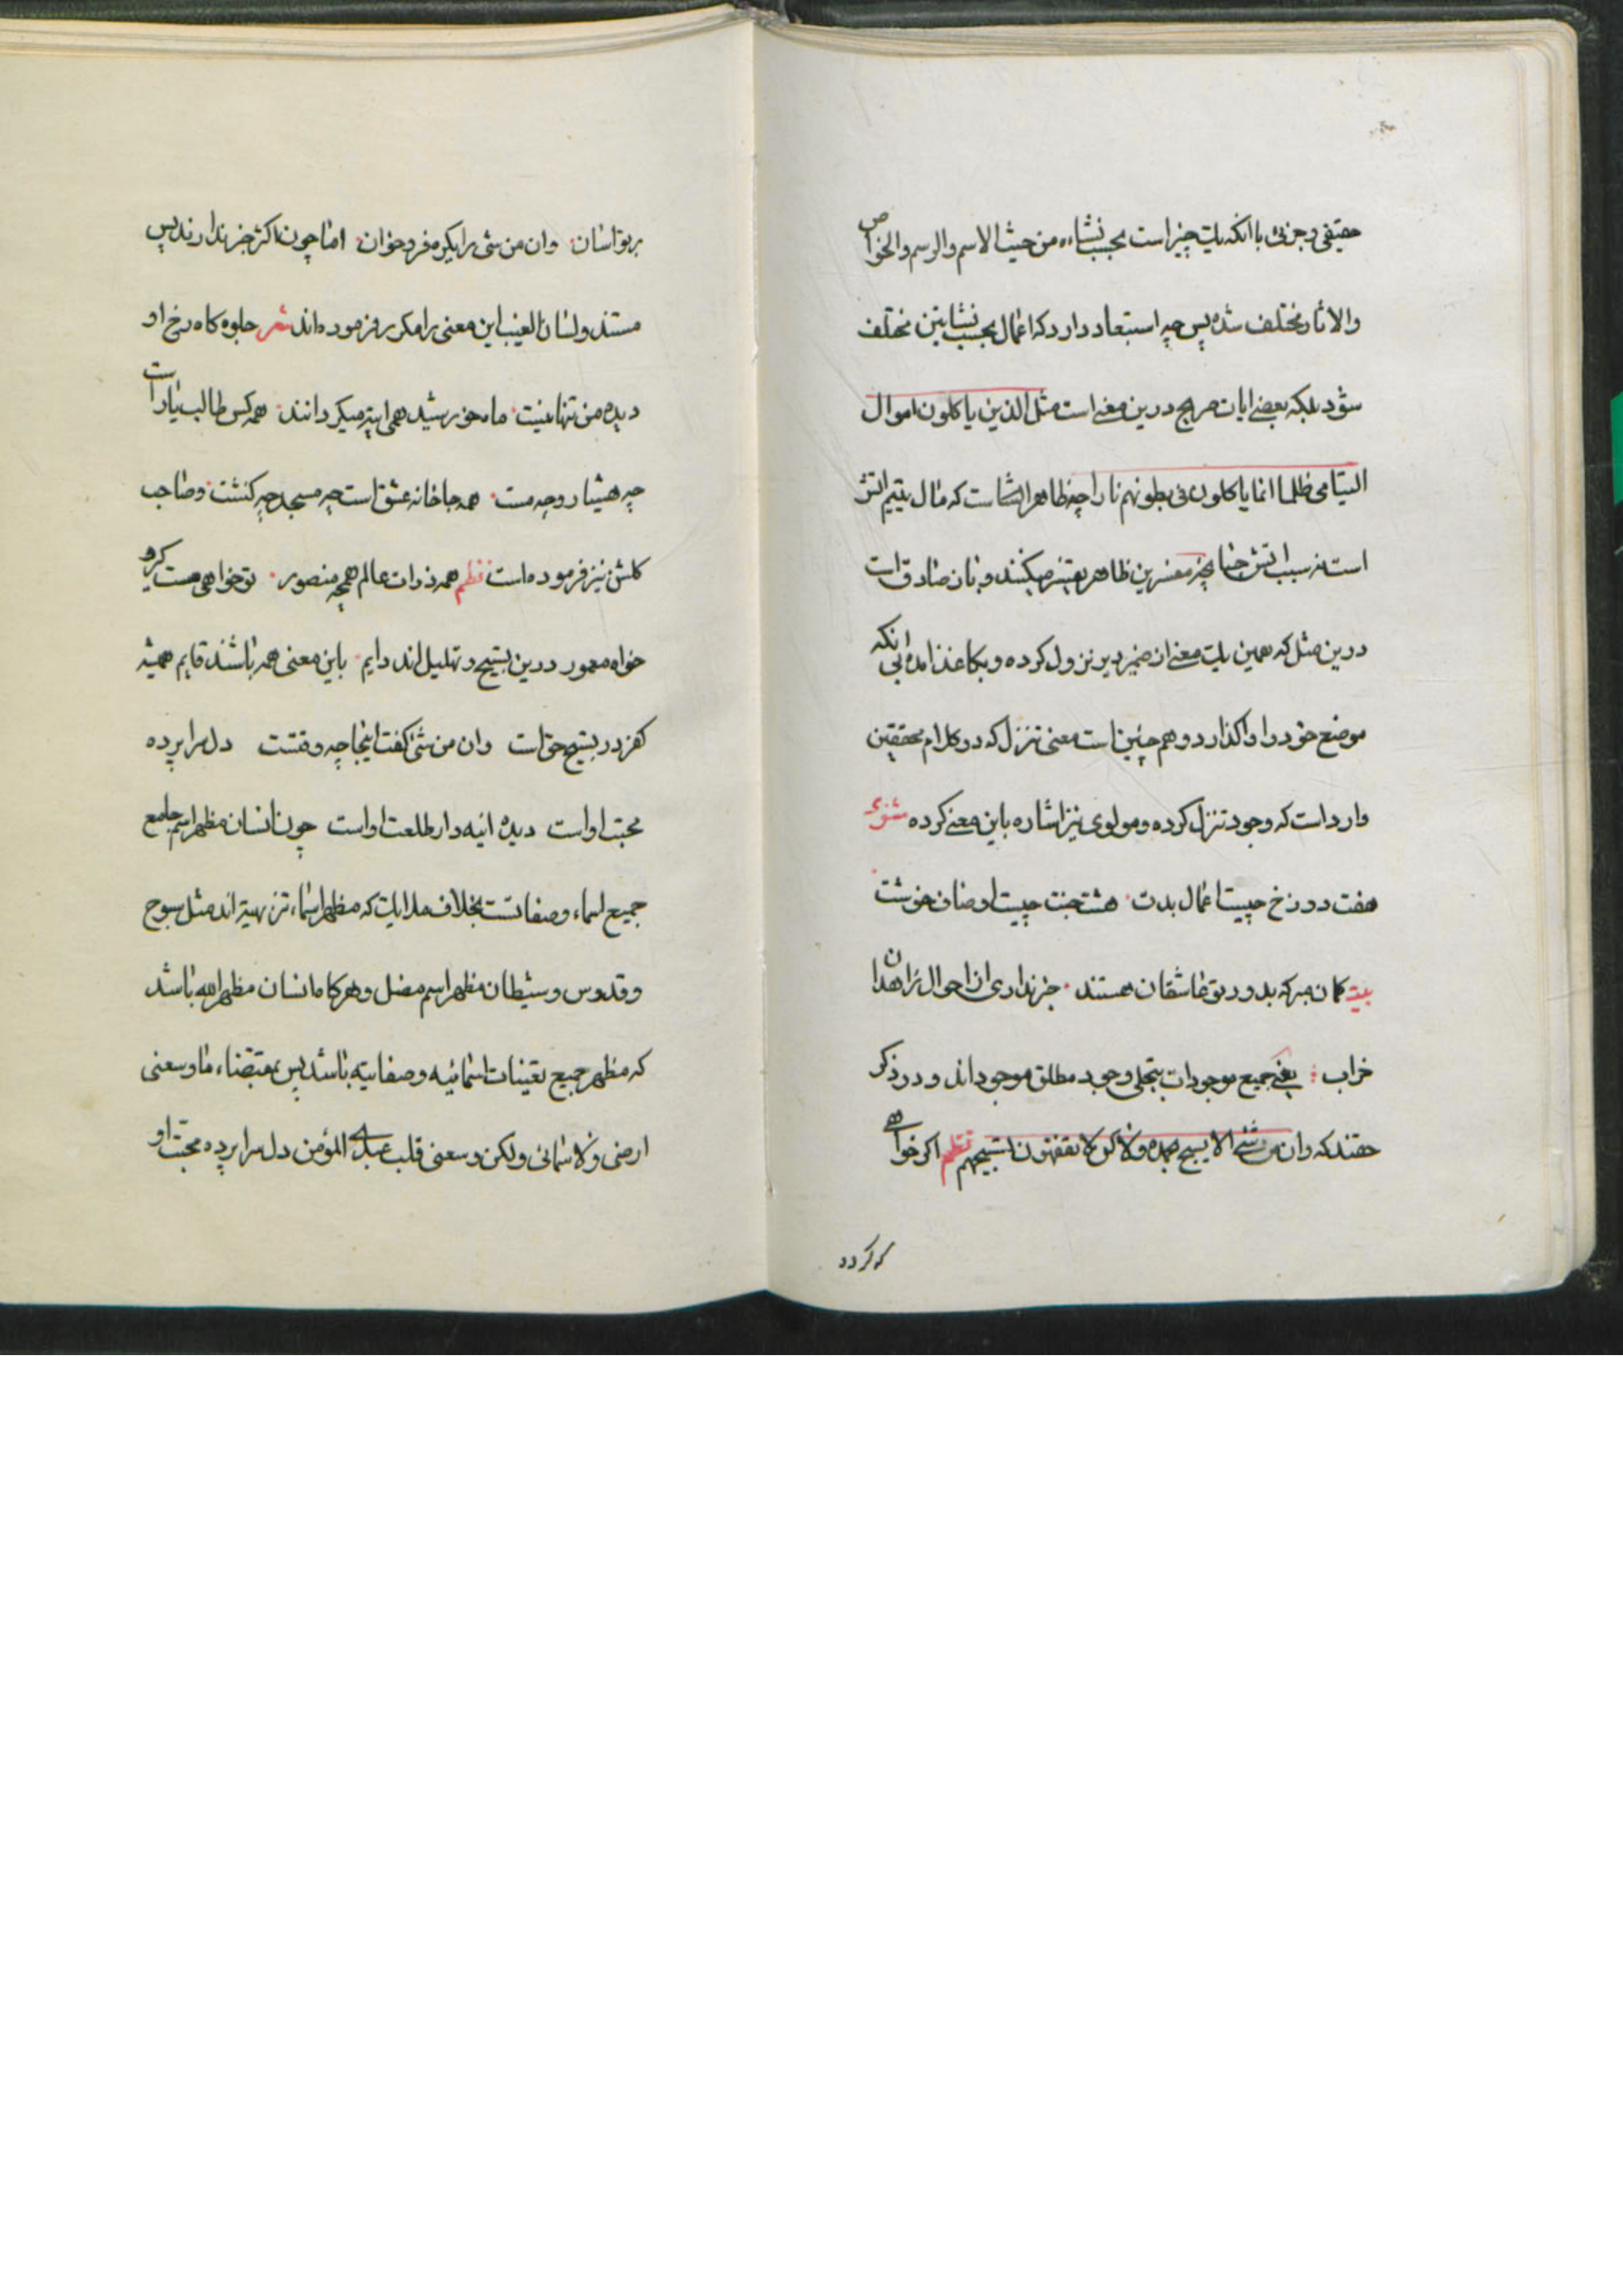 حقیقی و جزئی با انکه یک چیز است بحسب نشاءه من حیث الاسم والرسم والخواص
والاثار مختلف شده پس چه استبعاد دارد که اعمال بحسب نشاتین مختلف
شود بلکه بعضی ایات صریح درین معنی است مثل الذین یاکلون اموال
الیتامی ظلما انما یاکلون فی بطونهم نارا چه ظاهرا نشا است که مال یتیم اتش
است نه سبب اتش چنانچه مفسرین ظاهر تفسیر میکنند و بان صادق است
درین مثل که همین یک معنی از ضمیر دبیر نزول کرده و بکاغذ امده بی انکه
موضع خود را واگذارد و هم چنین است معنی تنزل که در کلام محققین
وارد است که وجود تنزل کرده و مولوی نیز اشاره باین معنی کرده مثنوی
هفت دوزخ چیست اعمال بدت هشت جنت چیست اوصاف خوشت
بیت کمان مبر که بدور تو عاشقان مستند خبر نداری از احوال زاهدان
خراب یعنی جمیع موجودات بتجلی وجود مطلق موجود اند و در ذکر
حقند که وان من شئ الا یسبح بحمده ولاکن لا تفقهون تسبیحهم نظم اکر خواهی
که کردد
بر تو اسان وان من شی را یکره فرو خوان اما چون اکثر خبر ندارند پس
مستند و لسان الغیب این معنی را مکرر فرموده اند شعر جلوه کاه رخ او
دیده من تنها نیست ماه و خورشید همین اینه میکردانند همه کس طالب یار است
چه هشیار و چه مست همه جا خانه عشق است چه مسجد چه کنشت و صاحب
کلشن نیز فرموده است نظم همه ذرات عالم همچو منصور تو خواهی مست کیر و
خواه مخمور درین تسبیح و تهلیل اند دایم باین معنی همه باشند قایم همیشه
کفر در تسبیح حق است وان من شئ کفت اینجا چه دقتست دل سرا پرده
محبت او است دیده ائینه دار طلعت او است چون انسان مظهر اسم جامع
جمیع اسماء و صفاتست بخلاف ملایک که مظهر اسماء تنزیهیه اند مثل سبوح
و قدوس و شیطان مظهر اسم مضل و هرکاه انسان مظهر الله باشد
که مظهر جمیع تعینات اسمائیه و صفاتیه باشد پس بمقتضاء ما وسعنی
ارضی ولا سمائی ولکن وسعنی قلب عبدی المؤمن دل سرا پرده محبت او